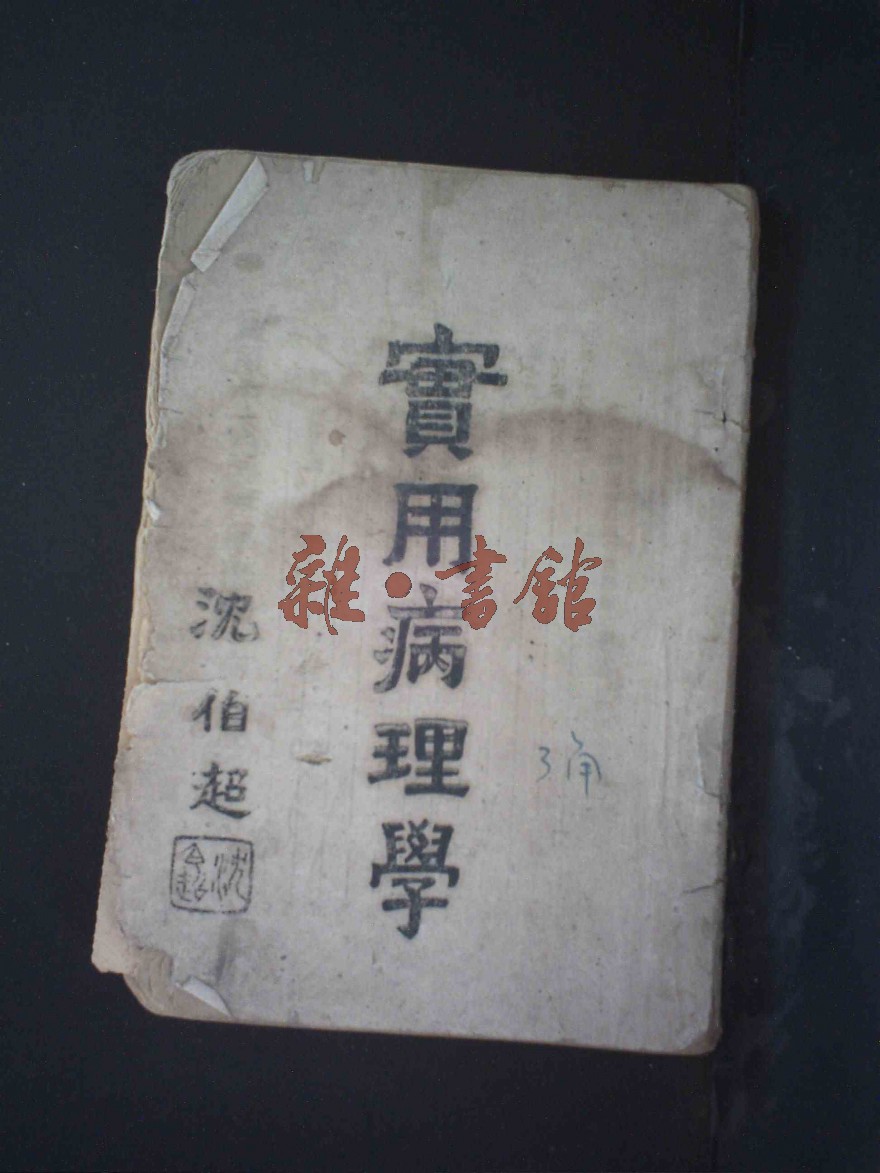 實用病理學
3角
沈伯超
雜·書館